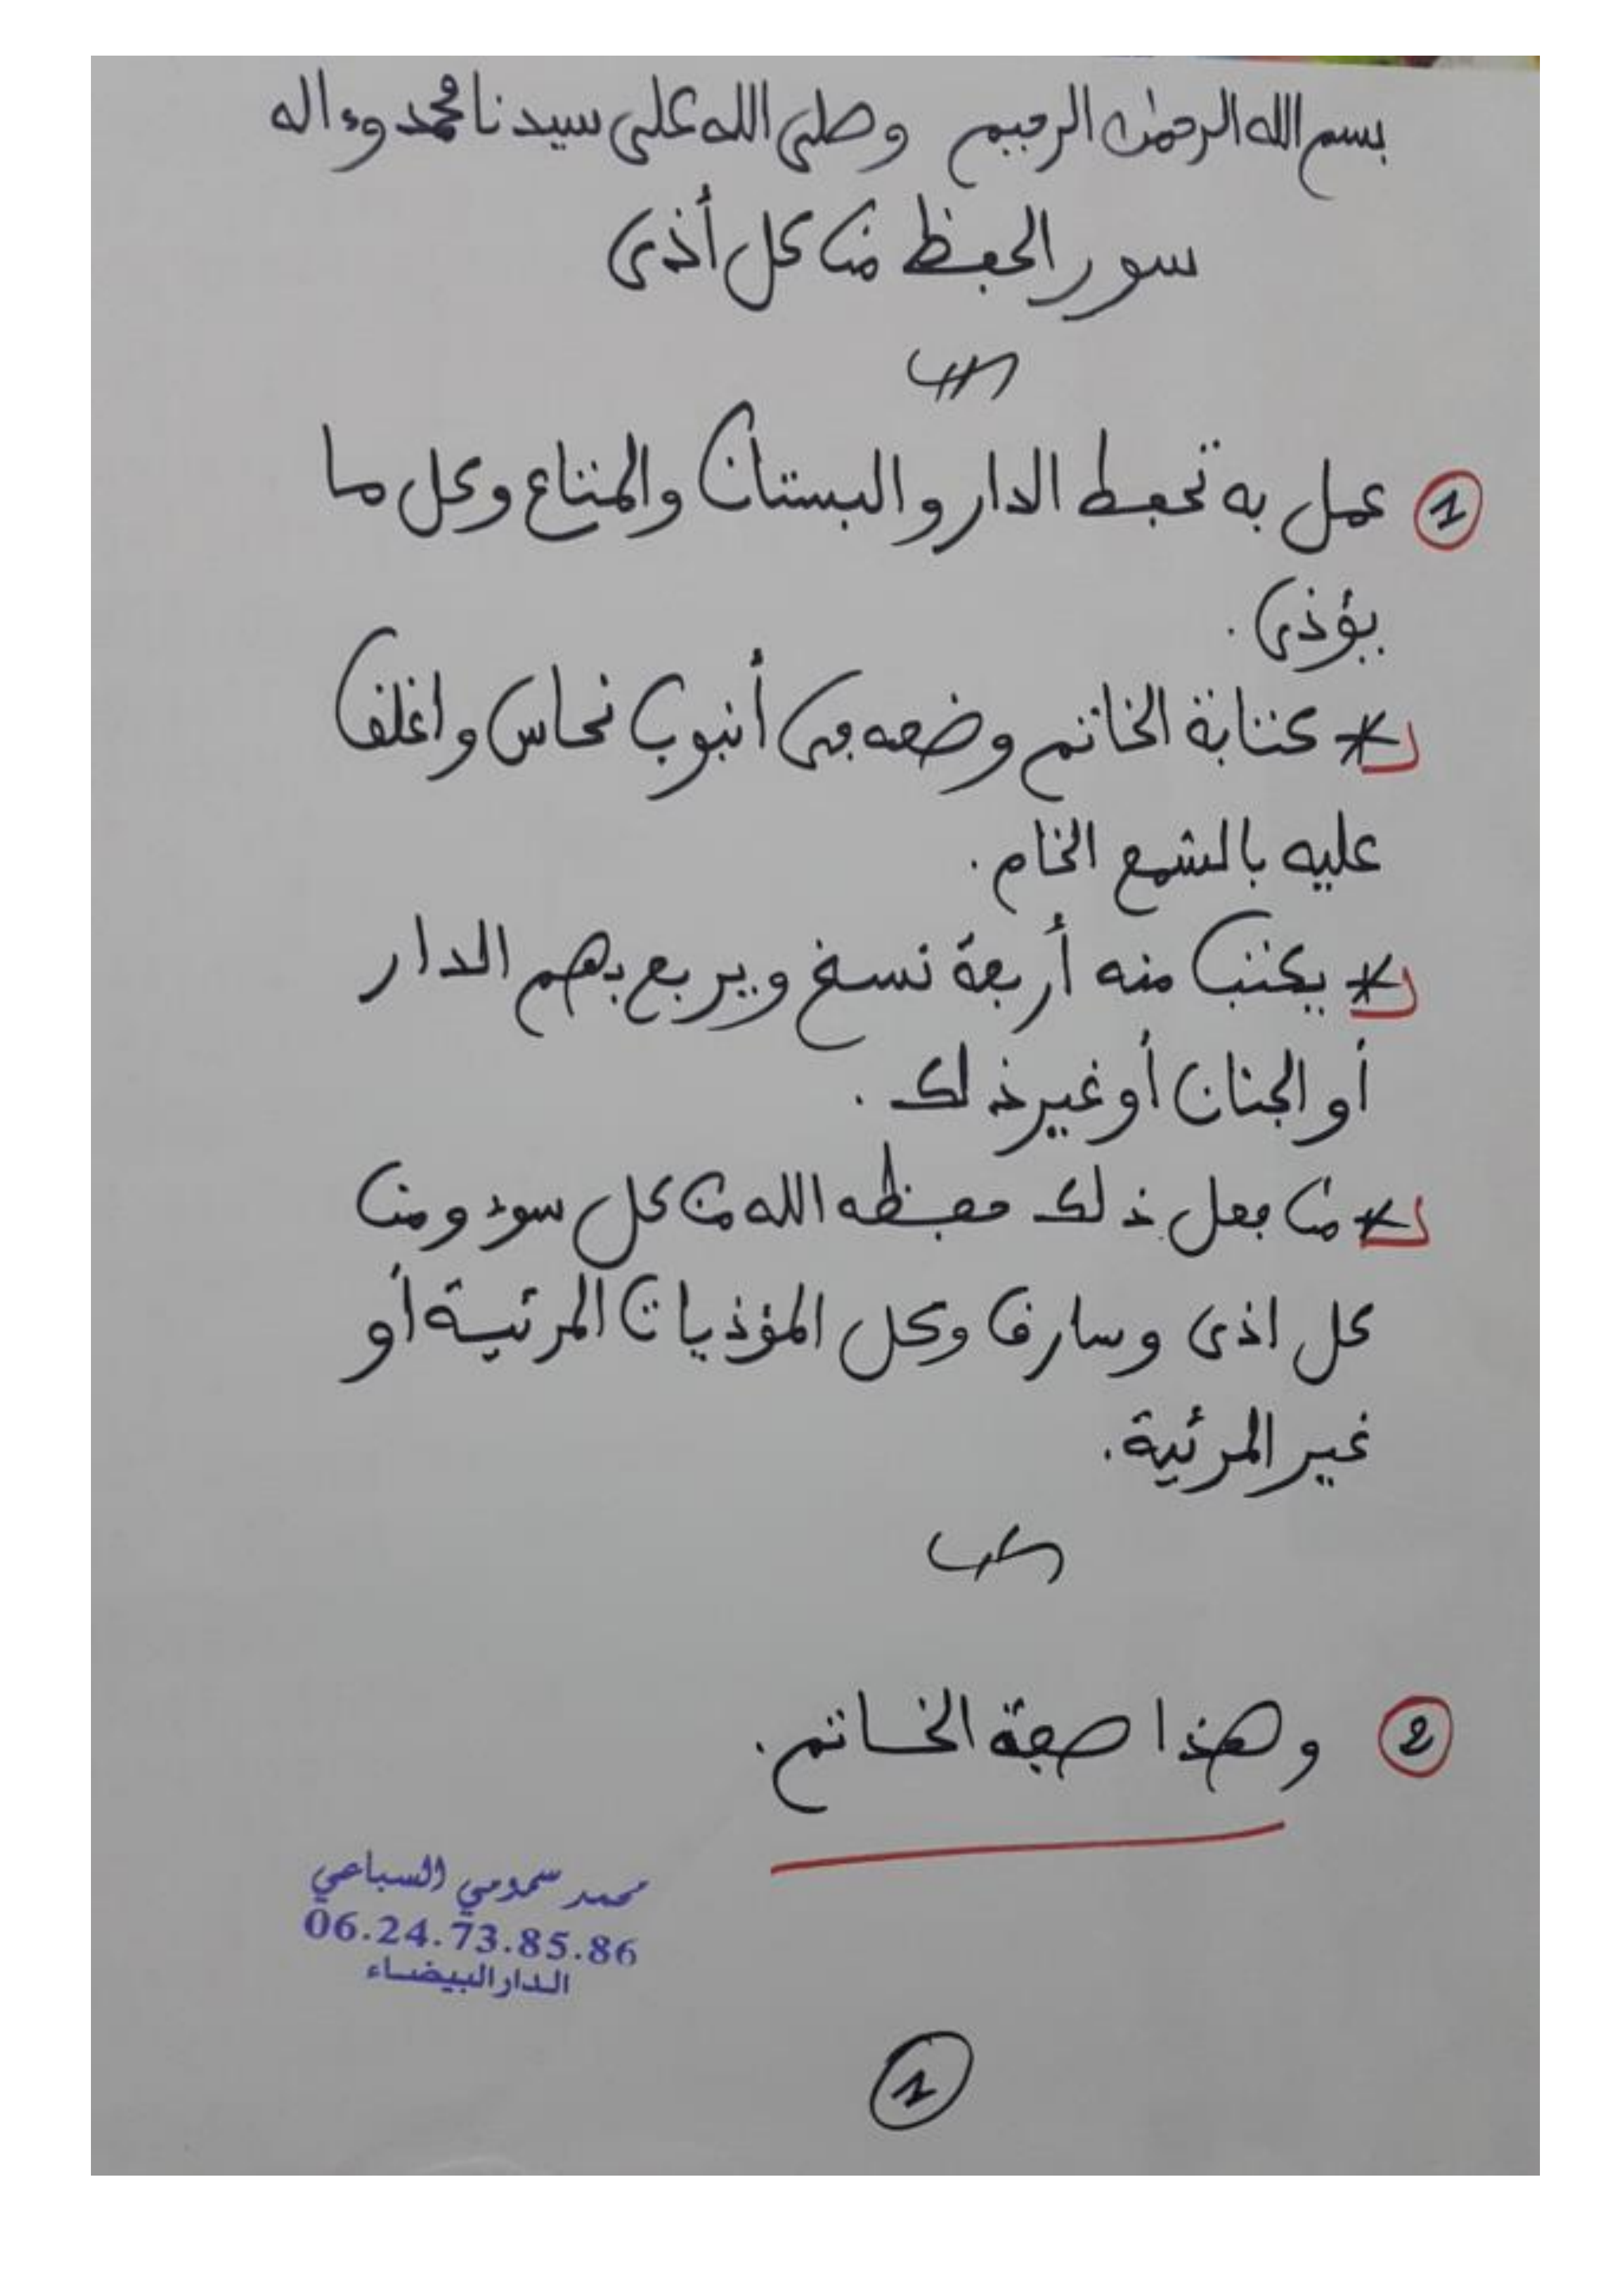 بسم الله الرحمن الرحيم وصلى الله على سيدنا محمد وءاله
سور الحفظ من كل أذى
① عمل به تحفظ الدار والبستان والمتاع وكل ما
يؤذى.
* كتابة الخاتم وضعه فى أنبوب نحاس واغلق
عليه بالشمع الخام.
* يكتب منه أربعة نسخ ويربع بهم الدار
أو الجنان أو غير ذلك.
* من فعل ذلك حفظه الله من كل سوء ومن
كل اذى وسارق وكل المؤذيات المرئية أو
غير المرئية.
② وهذا صفة الخاتم.
محمد سمومي السباعي
06.24.73.85.86
الدار البيضاء
①